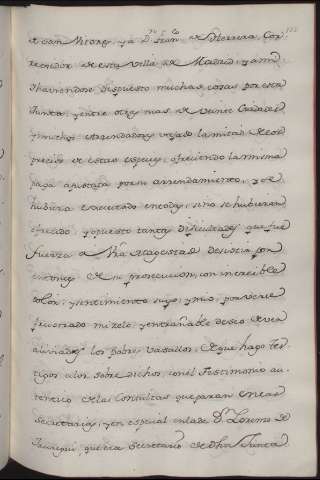 de San Nicolas, ya Dn. Fran.co de Herrera, Cor
regidor de esta Villa de Madrid, y a mi
Y haviendose dispuesto muchas cosas por esta
Junta, y entre otras mas de veinte Ciudades
y muchos Arrendadores vejado la mitad de los
precios de estas especies, ofreciendo la misma
paga ajustada por su arrendamiento, y se
hubiera executado en todas, si no se hubieran
ofrecido, y opuesto tantas dificultades, que fue
fuerza a Vra. Magestad desistir por
entonces de su prosecucion, con increible
dolor, y sentimiento suyo, y mio, por verse
frustrado mi zelo, y entrañable deseo de ver
aliviados los pobres Vasallos, de que hago tes-
tigos a los sobre dichos, con el Testimonio au-
tentico de las Consultas que paran en las
Secretarias, y en especial en la de Dn. Lorenzo de
que era Secretario de Dha. Junta